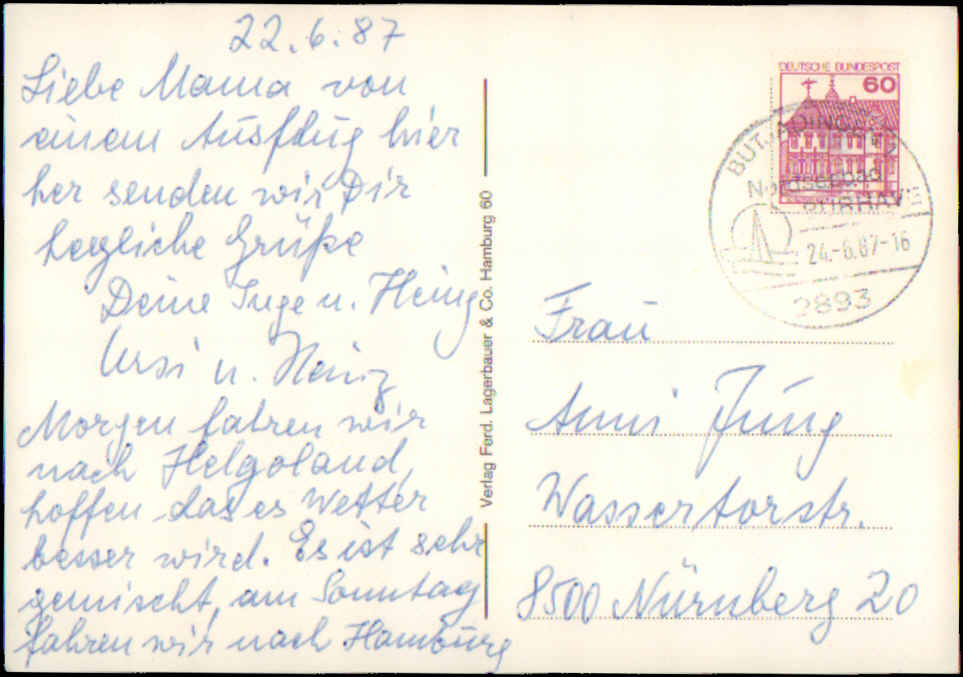 22.6.87
Liebe Mama von
einem Ausflug hier
her senden wir Dir
herzliche Grüße
Deine Inge u. Heinz
Ursi u. Heinz
Morgen fahren wir
nach Helgoland,
hoffen das es Wetter
besser wird. Es ist sehr
gemischt, am Sonntag
fahren wir nach Hamburg
Verlag Ferd. Lagerbauer & Co. Hamburg 60
DEUTSCHE BUNDESPOST
60
BUTJADINGEN
Nordseebad
BURHAVE
24.-6.87-16
2893
Frau
Anni Jung
Wassertorstr.
8500 Nürnberg 20